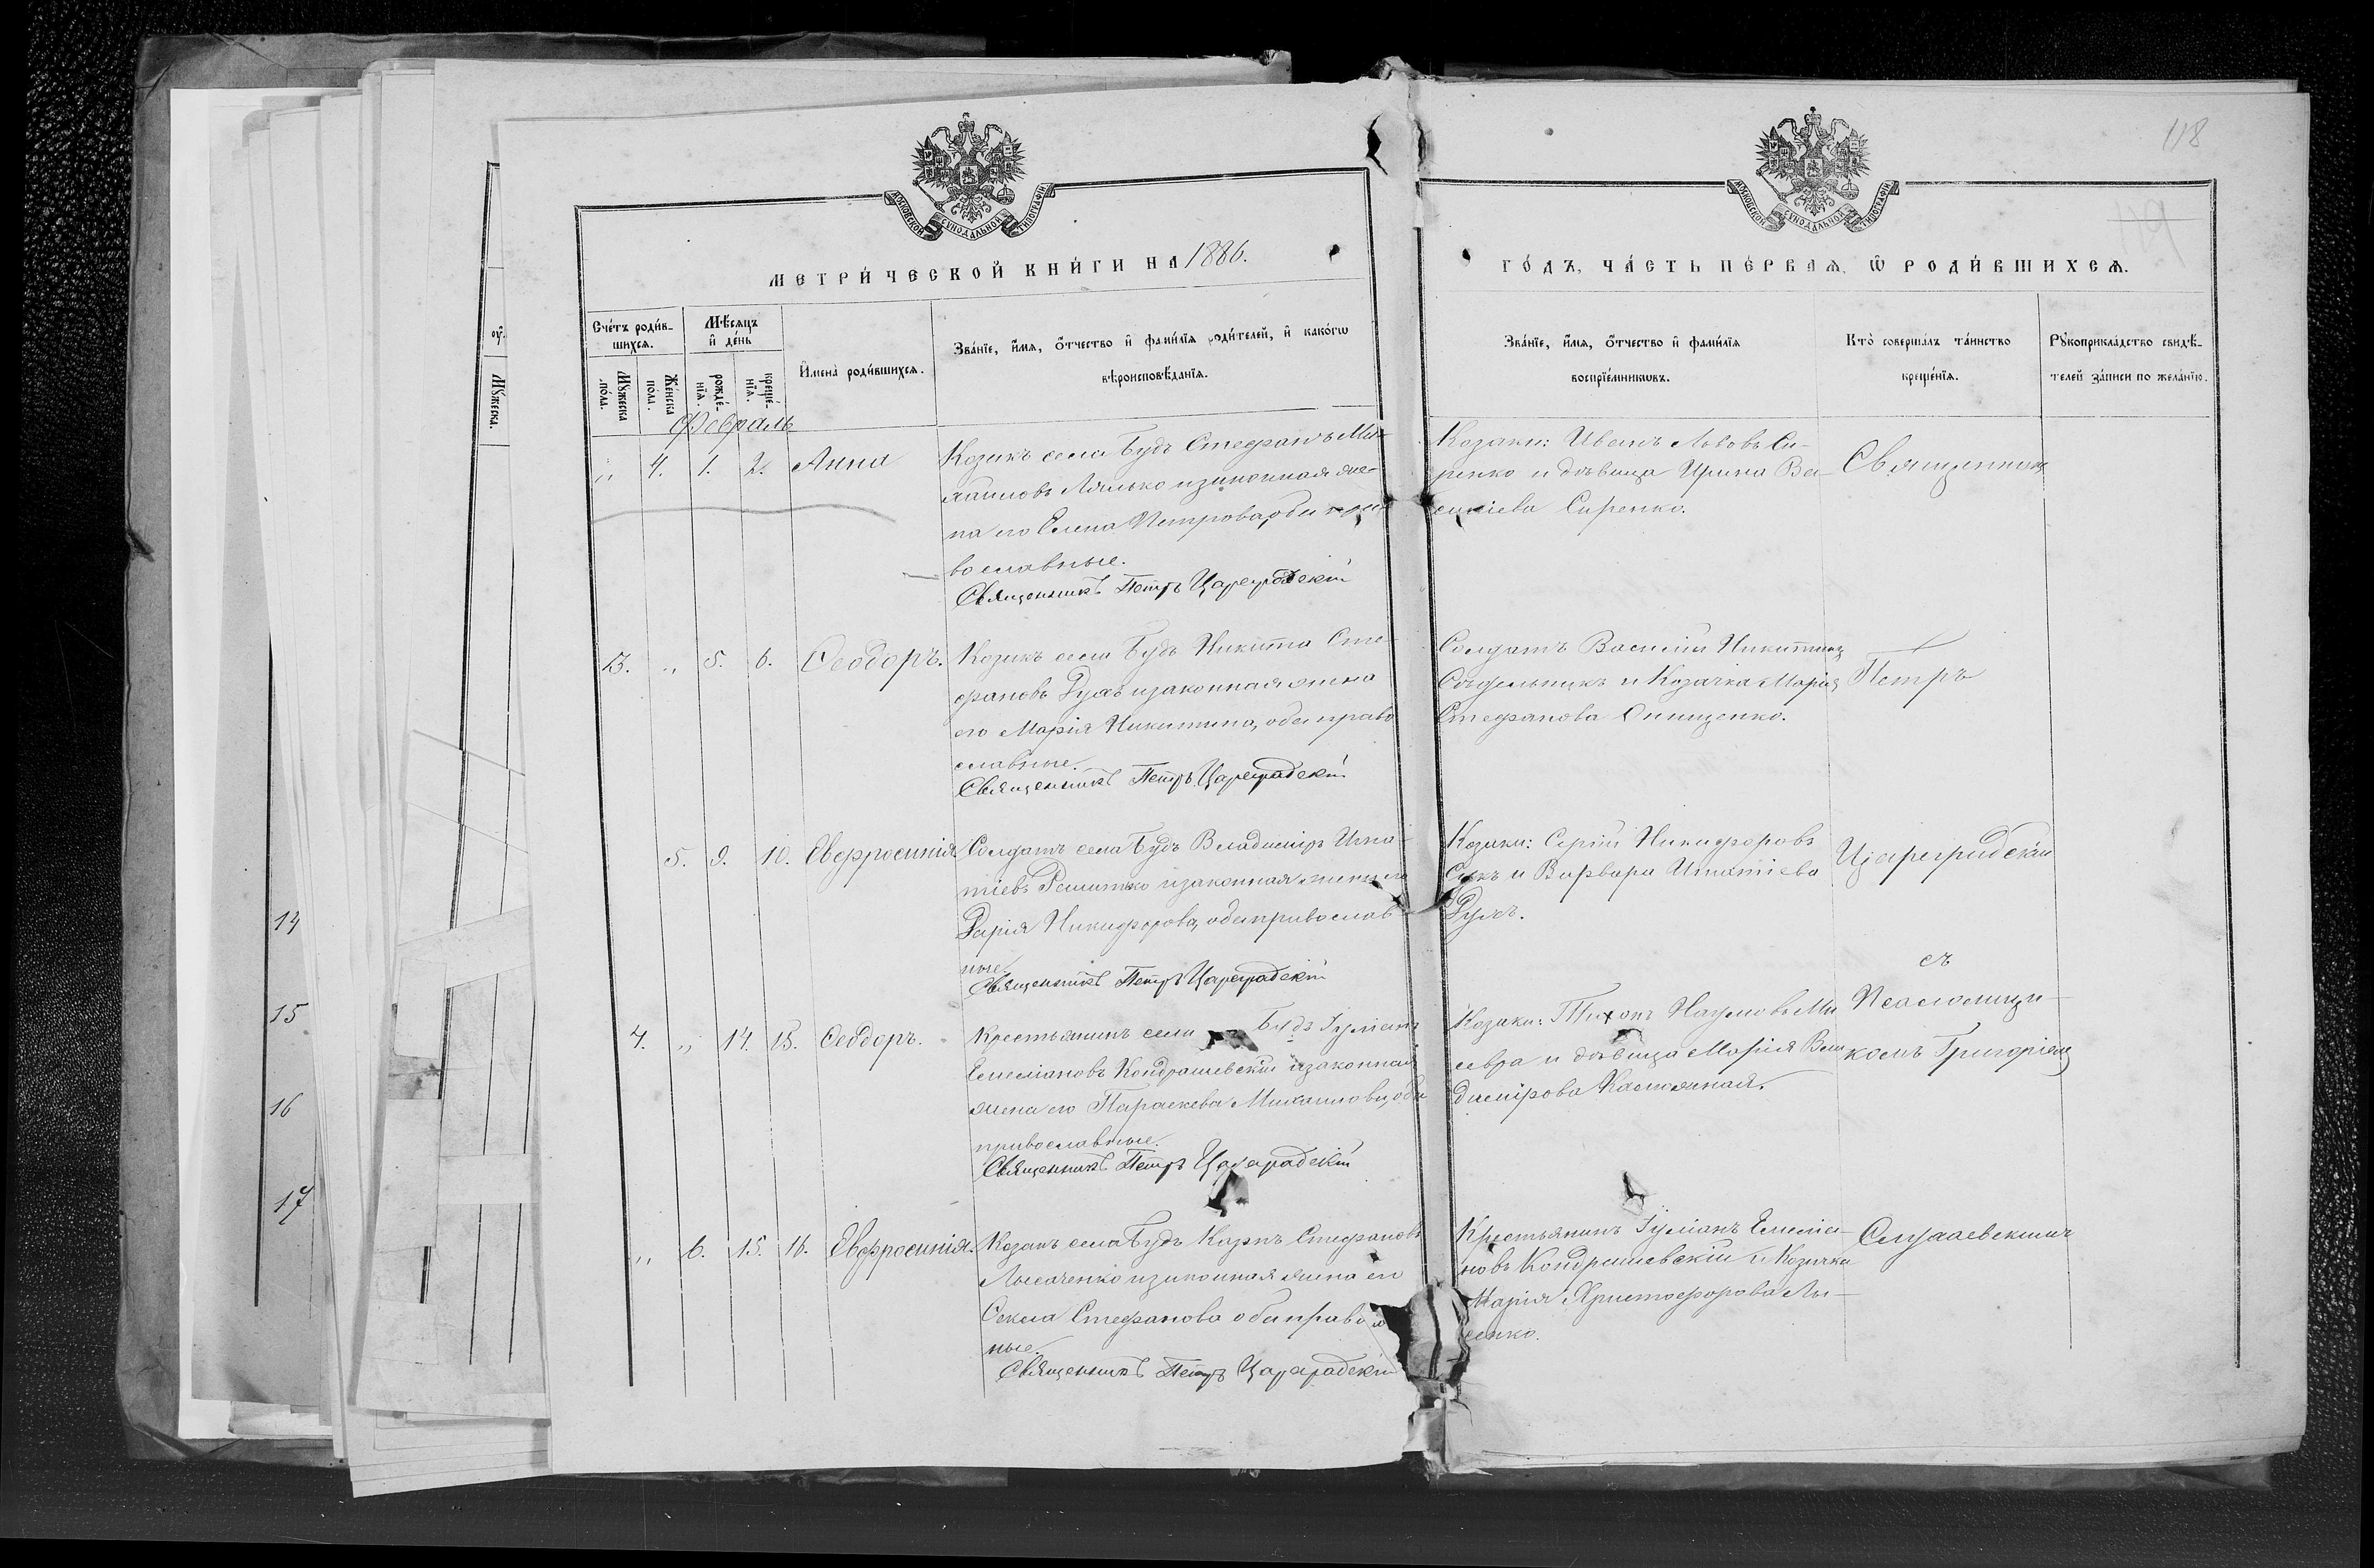 118
119
МОСКОВСКОЙ СѴНОДАЛЬНОЙ ТИПОГРАФІИ
МОСКОВСКОЙ СѴНОДАЛЬНОЙ ТИПОГРАФІИ
МЕТРИ́ЧЕСКОЙ КНИ́ГИ НА 1886.
ГО́ДЪ, ЧА́СТЬ ПЕ́РВАЯ, Ѡ РОДИ́ВШИХСЯ.
Сче́тъ роди́в-
шихся.
Мѣ́сяцъ
и де́нь
Му́жеска
по́ла.
Же́нска
по́ла.
рожде́-
нїя.
креще́-
нїя.
Имена̀ роди́вшихся.
Зва́нїе, и́мя, о́тчество и фами́лїя роди́телей, и како́гѡ
вѣроисповѣ́данїя.
Зва́нїе, и́мя, о́тчество и фами́лїя
воспрїе́мникѡвъ.
Кто̀ соверша́лъ та́инство
креще́нїя.
Рꙋкоприкла́дство свидѣ́-
телей за́писи по жела́нїю.
Мꙋ́жеска.
Февраль
„ 4. 1. 2. Анна
Козакъ села Будъ Стефанъ Ми-
хаиловъ Лялько и законная же-
на его Елена Петрова, оба пра-
вославные.
Священникъ Петръ Цареградскій
Козаки: Иванъ Львовъ Си-
ренко и дѣвица Ирина Ва-
силіева Сиренко.
Священникъ
3. „ 5. 6. Ѳеодоръ.
Козакъ села Будъ Никита Сте-
фановъ Рухъ и законная жена
его Марія Никитина, оба право
славные.
Священникъ Петръ Цареградскій
Солдатъ Василій Никитинъ
Сѣдельникъ и Козачка Марія
Стефанова Онищенко.
Петръ
5. 9. 10. Евфросинія
Солдатъ села Будъ Владиміръ Игна-
тіевъ Решитько и законная жена его
Дарія Никифорова, оба православ-
ные.
Священникъ Петръ Цареградскій
Козаки: Сергій Никифоровъ
и Варвара Игнатіева
Рухъ.
Цареградскій
съ
4. „ 14. 15. Ѳеодоръ.
Крестьянинъ села Будъ Іуліанъ
Емеліановъ Кондрашевскій и законная
жена его Параскева Михаилова, оба
православные.
Священникъ Петръ Цареградскій
Козаки: Тихонъ Наумовъ Ми
севра и дѣвица Марія Вла
димірова
Псаломщи-
комъ Григоріемъ
„ 6. 15. 16. Евфросинія.
Козакъ села Будъ Карпъ Стефановъ
Лысаченко и законная жена его
Ѳекла Стефанова оба правосл
ные.
Священникъ Петръ Цареградскій
Крестьянинъ Іуліанъ Емелiа-
новъ Кондрашевскій и Козачка
Марія Христофорова Лы-
сенко.
14
15
16
17